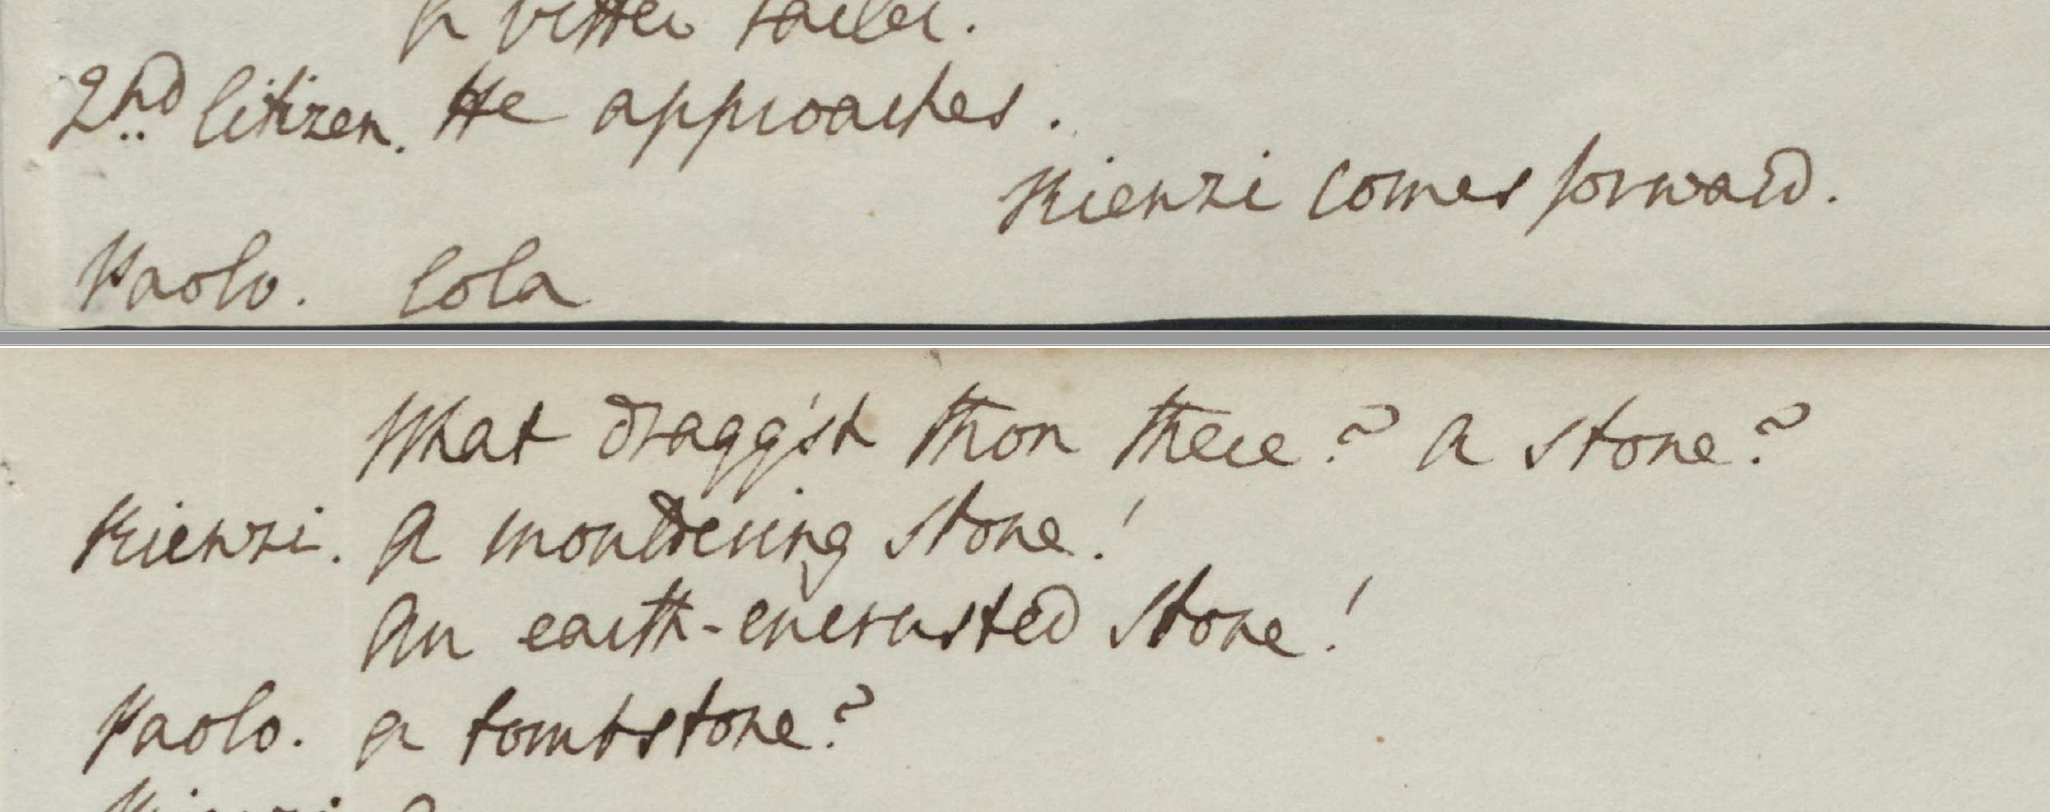 A bitter railer.
2nd Citizen. He approaches.
Rienzi comes forward.
Paolo. Cola
What dragg'st thou there? A stone?
Rienzi. A mouldering stone!
An earth-encrusted stone!
Paolo. A tombstone?
Rienzi. A